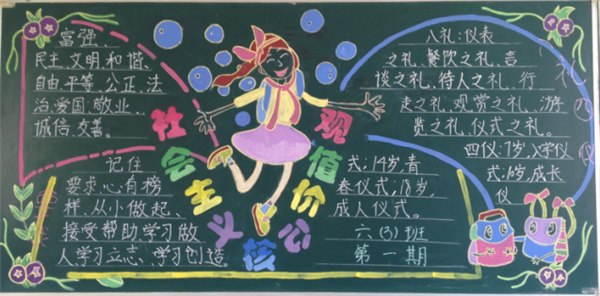 富强、
民主、文明、和谐、
自由、平等、公正、法
治、爱国、敬业、
诚信、友善。
记住
要求、心有榜
样、从小做起、
接受帮助学习做
人学习立志、学习创造。
社会主义核公价值观
八礼:仪表
之礼、餐饮之礼、言
谈之礼、待人之礼、行
走之礼、观赏之礼、游
览之礼、仪式之礼。
四仪:7岁入学仪
式:10岁,成长
仪
式:14岁,青
春仪式,18岁,
成人仪式。
六(3)班
第一期
礼
四
仪